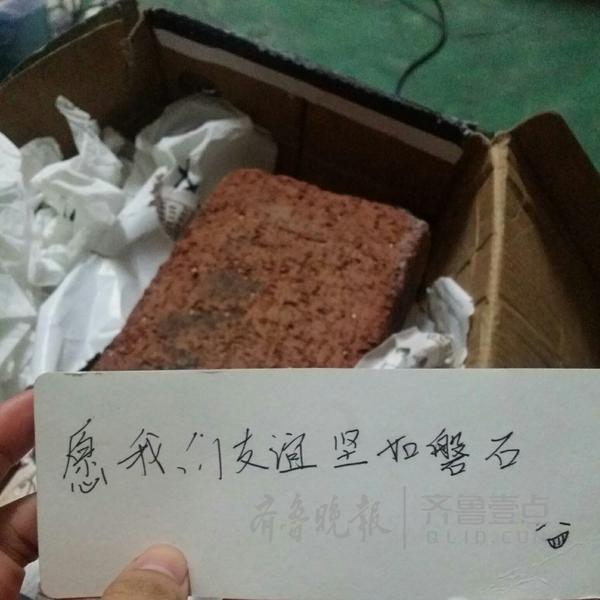 愿我们友谊坚如磐石
齐鲁晚报 齐鲁壹点
QLID.COM